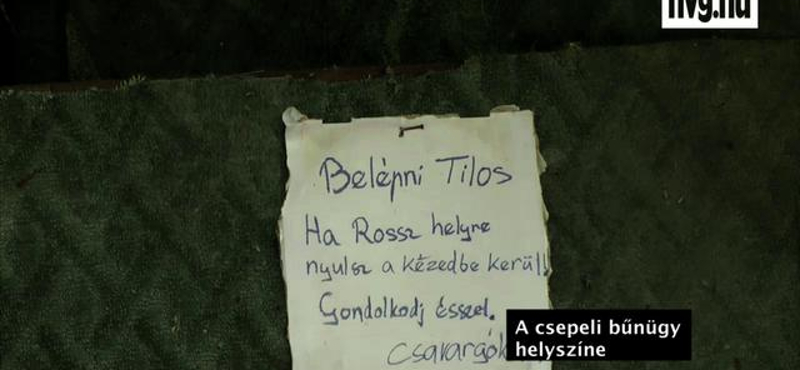 hvg.hu
Belépni Tilos
Ha Rossz helyre
nyulsz a kézedbe kerül!
Gondolkodj ésszel.
Csavargók
A csepeli bűnügy
helyszíne